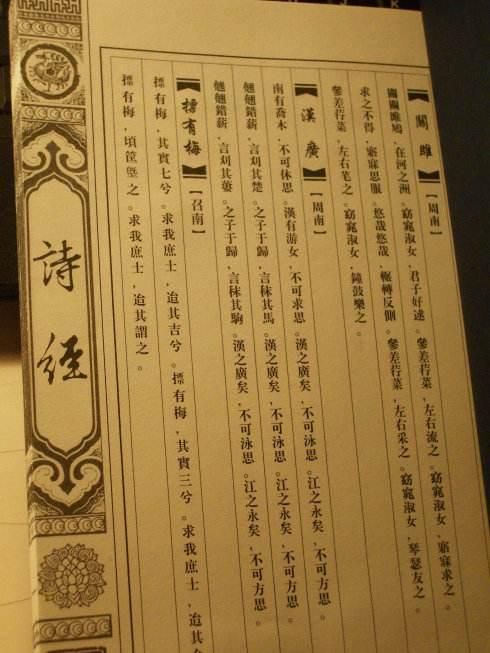 關雎【周南】
關關雎鳩,在河之洲。窈窕淑女,君子好逑。參差荇菜,左右流之。窈窕淑女,寤寐求之。
求之不得,寤寐思服。悠哉悠哉,輾轉反側。參差荇菜,左右采之。窈窕淑女,琴瑟友之。
參差荇菜,左右笔之。窈窕淑女,鐘鼓樂之。
漢廣【周南】
南有喬木,不可休思。漢有游女,不可求思。漢之廣矣,不可泳思。江之永矣,不可方思。
翹翹錯薪,言刈其楚。之子于歸,言秣其馬。漢之廣矣,不可泳思。江之永矣,不可方思。
翹翹錯薪,言刈其蔞。之子于歸,言秣其駒。漢之廣矣,不可泳思。江之永矣,不可方思。
摽有梅【召南】
摽有梅,其實七兮。求我庶士,迨其吉兮。摽有梅,其實三兮。求我庶士,迨其
摽有梅,頃筐塈之。求我庶士,迨其謂之。
詩經